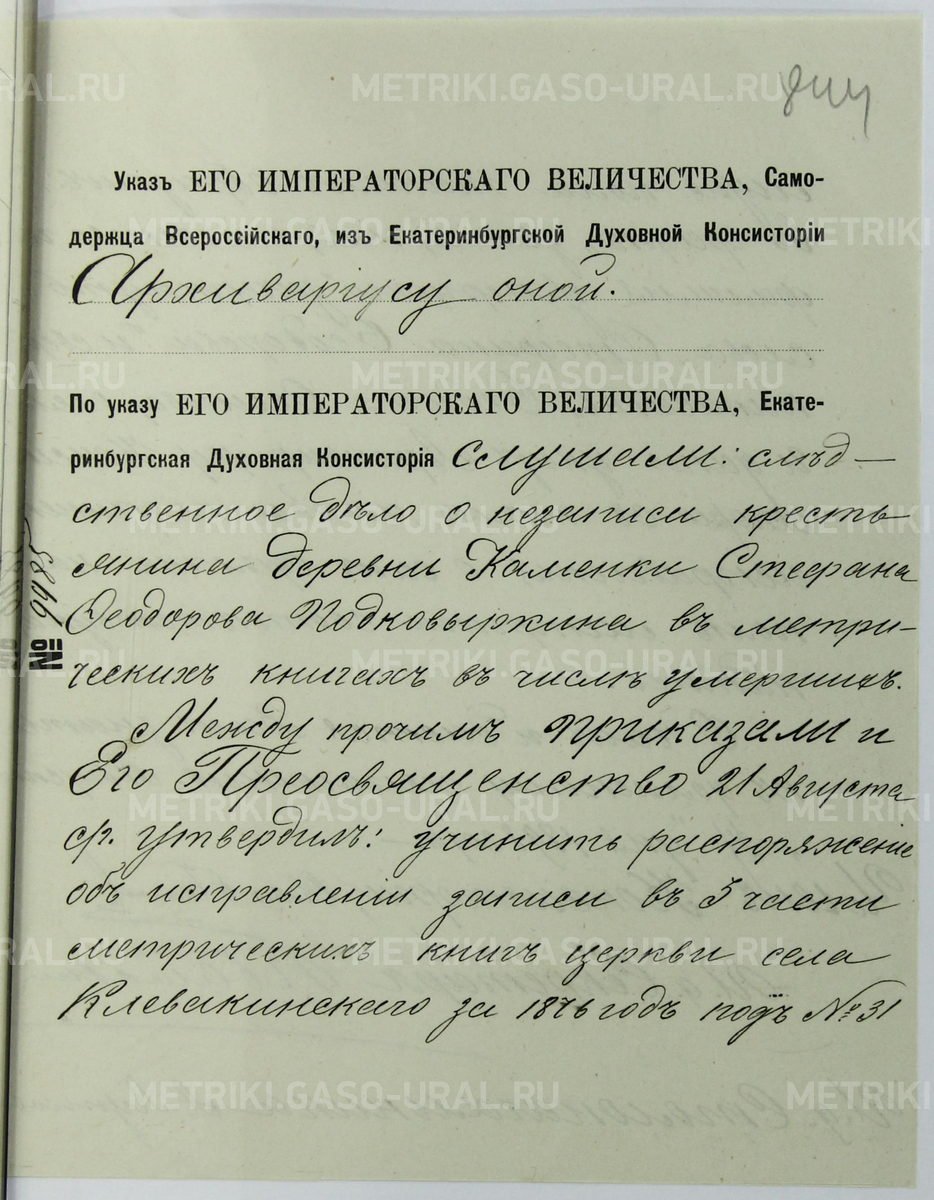 Указъ ЕГО ИМПЕРАТОРСКАГО ВЕЛИЧЕСТВА, Само-
держца Всероссійскаго, изъ Екатеринбургской Духовной Консисторіи
Архиваріусу оной.
По указу ЕГО ИМПЕРАТОРСКАГО ВЕЛИЧЕСТВА, Екате-
ринбургская Духовная Консисторія слушали: слѣд-
ственное дѣло о незаписи кресть-
янина деревни Каменки Стефана
Ѳеодорова Подковыркина въ метри-
ческихъ книгахъ въ числѣ умершихъ.
Между прочимъ приказали и
Его Преосвященство 21 Августа
с/г. утвердилъ: учинить распоряженіе
объ исправленіи записи въ 3 части
метрическихъ книгъ церкви села
Клевакинскаго за 1876 годъ подъ № 31
№ 9985
METRIKI.GASO-URAL.RU